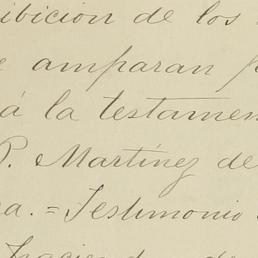 ibicion de los
amparan
á la testamen
P. Martínez de
a. = Testimonio
de